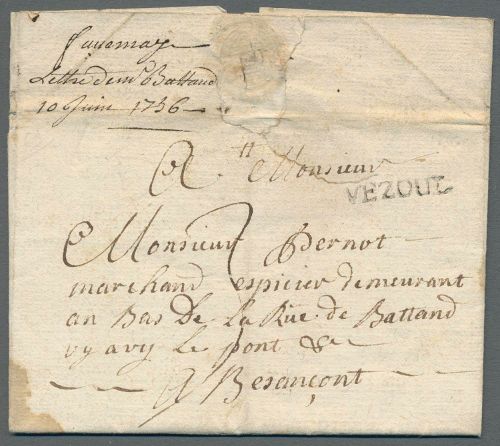 Lettre de mr Battand
10 Juin 1756
A Monsieur
VEZOUL
Monsieur Pernot
marchand espicier demeurant
au Bas De la Rue de Battand
vy avy le pont &c
A Besançont